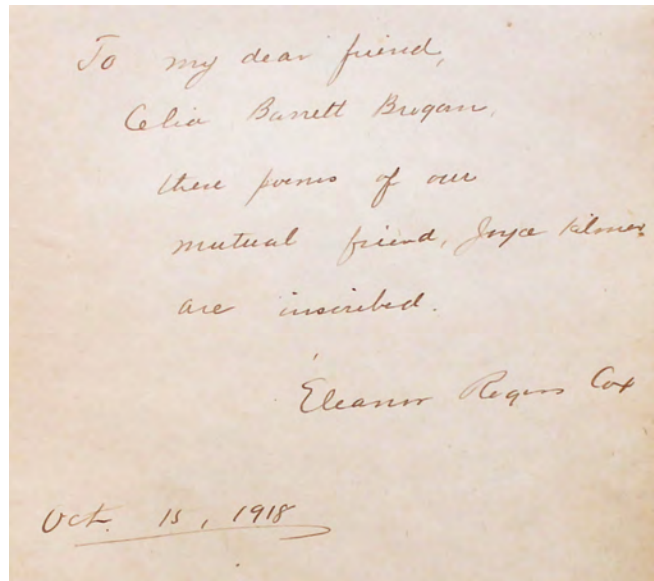 To my dear friend,
Celia Barrett Brogan,
these poems of our
mutual friend, Joyce Kilmer
are inscribed.
Eleanor Rogers Cox
Oct. 15, 1918